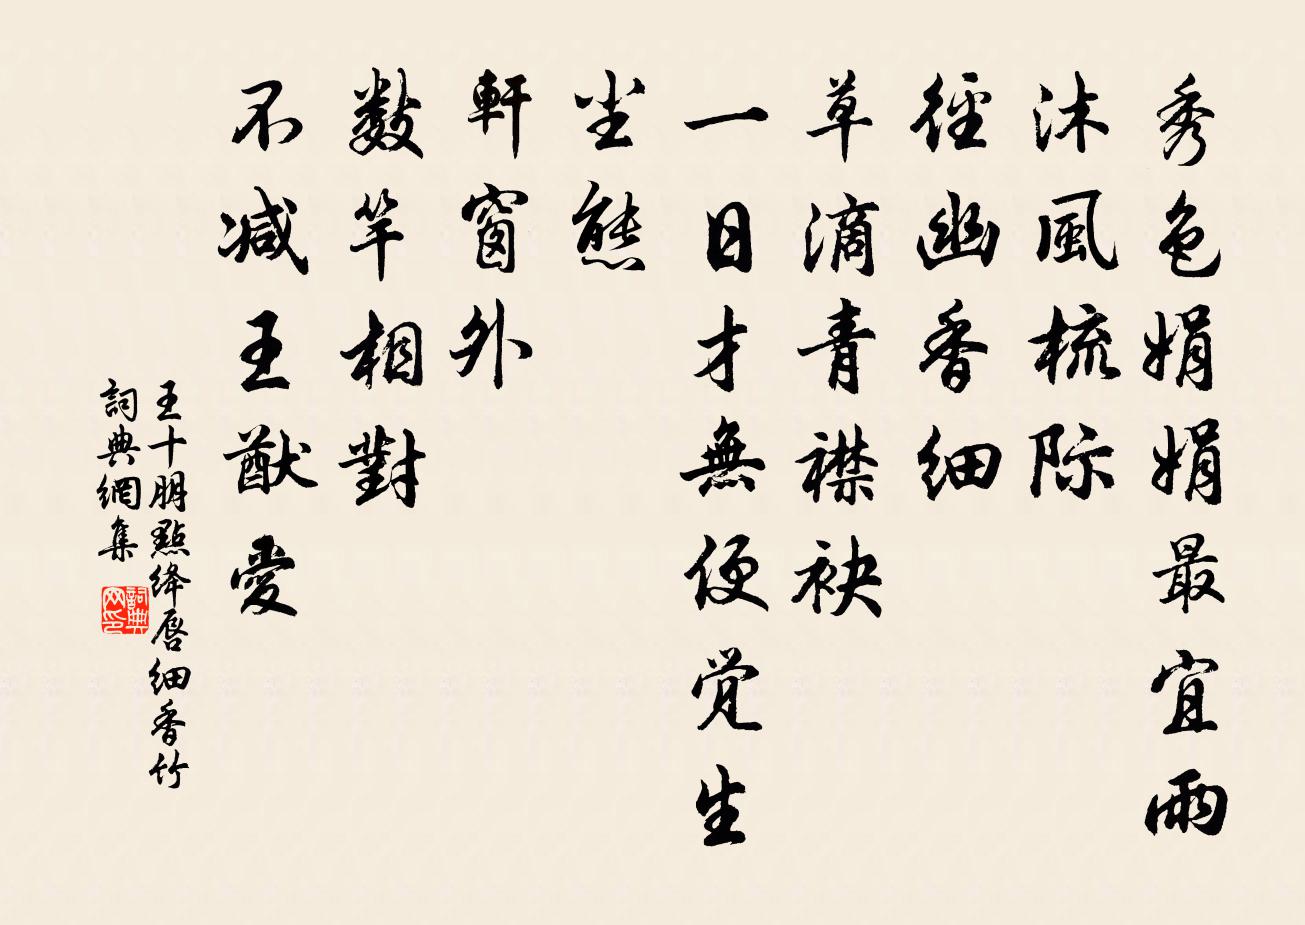 秀色娟娟最宜雨
沐風梳际
徑幽香细
草滴青襟袂
一日才無便覚生
尘態
軒窗外
數竿相對
不减王猷愛
王十朋點绛唇细香竹
詞典網集
詞典网印